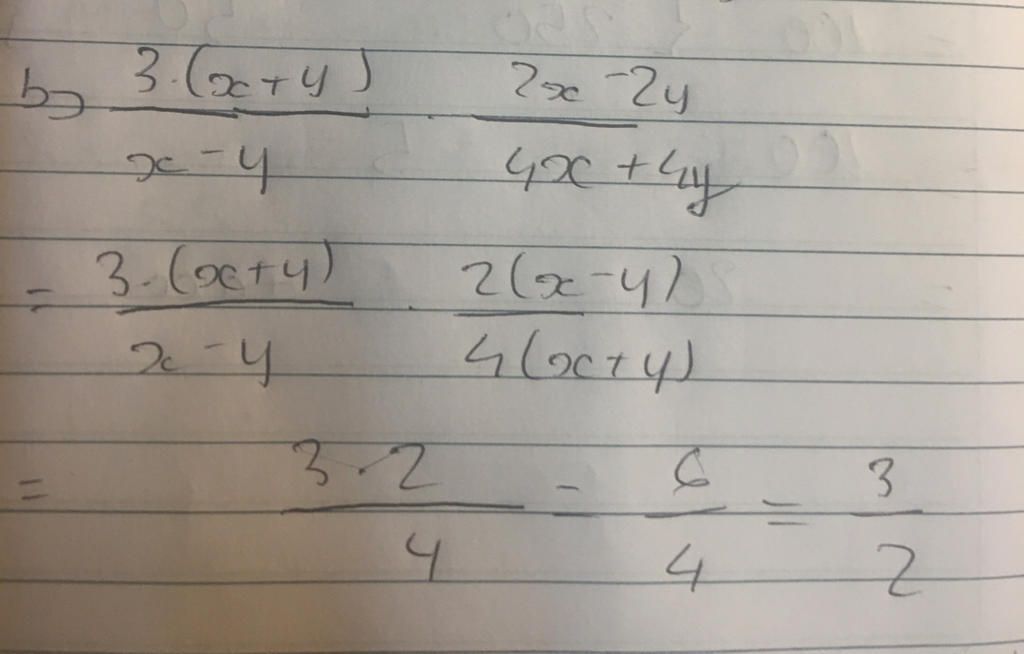 b) 3·(x+y)/x-y · 2x-2y/4x+4y
= 3·(x+y)/x-y · 2(x-y)/4(x+y)
= 3·2/4 = 6/4 = 3/2